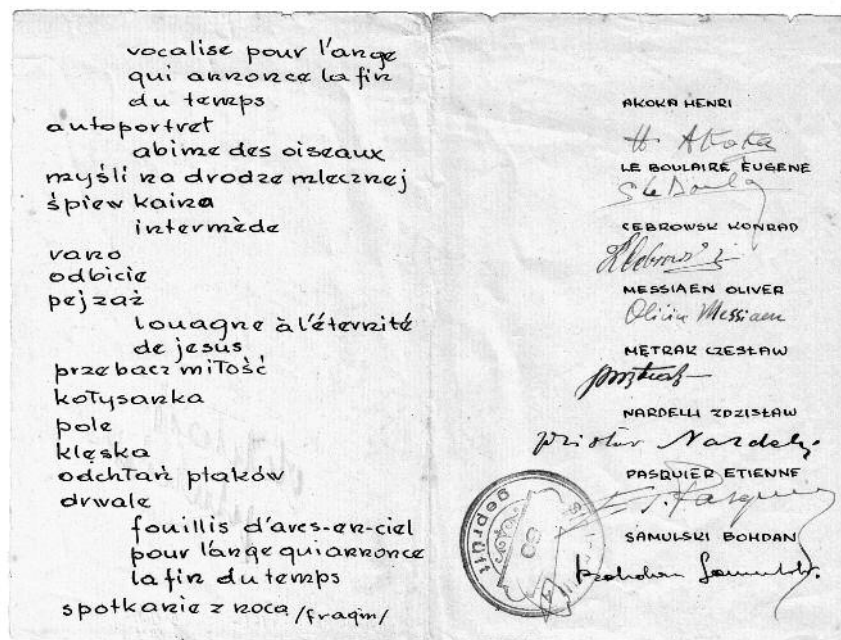 vocalise pour l'ange
qui annonce la fin
du temps
autoportret
abime des oiseaux
myśli na drodze mlecznej
śpiew kaina
intermède
rano
odbicie
pejzaż
louagne à l'éternité
de jesus
przebacz miłość
kołysanka
pole
klęska
odchłań ptaków
drwale
fouillis d'arcs-en-ciel
pour l'ange qui annonce
la fin du temps
spotkanie z nocą /fragm/
AKOKA HENRI
H. Akoka
LE BOULAIRE EUGENE
CEBROWSK KONRAD
MESSIAEN OLIVER
Olivier Messiaen
MĘTRAK CZESŁAW
NARDELLI ZDZISŁAW
Zdzisław Nardelli
PASQUIER ETIENNE
Et. Pasquier
SAMULSKI BOHDAN
Bohdan Samulski
geprüft